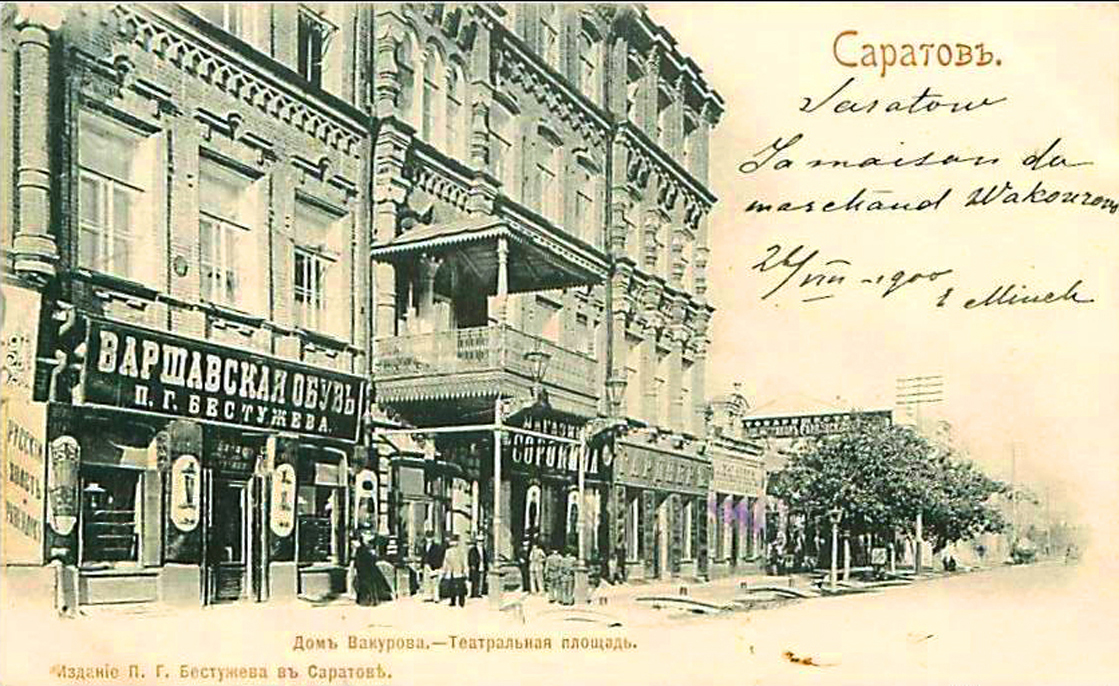 Саратовъ.
Saratow
La maison du
marchand Wakourow
24/VIII - 1900
E Minck
ВАРШАВСКАЯ ОБУВЬ
П. Г. БЕСТУЖЕВА.
МАГАЗИН
СОРОКИНА
РУССКІЙ
Домъ Вакурова.—Театральная площадь.
Изданіе П. Г. Бестужева въ Саратовѣ.